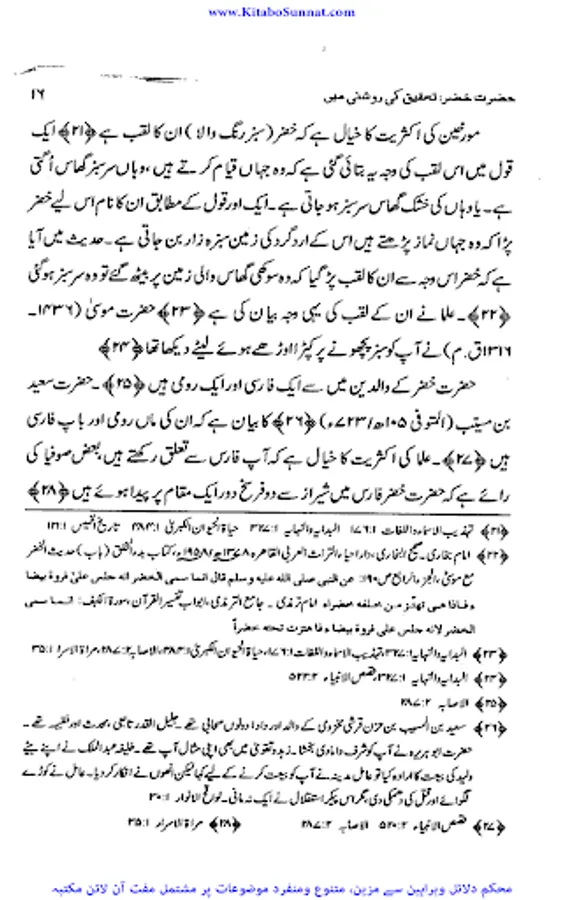 www.KitaboSunnat.com
حضرت خضر: تحقیق کی روشنی میں ۱۶
مورخین کی اکثریت کا خیال ہے کہ خضر (سبز رنگ والا) ان کا لقب ہے ﴿۲۱﴾ ایک
قول میں اس لقب کی وجہ یہ بتائی گئی ہے کہ وہ جہاں قیام کرتے ہیں، وہاں سرسبز گھاس اُگتی
ہے۔ یا وہاں کی خشک گھاس سرسبز ہو جاتی ہے۔ ایک اور قول کے مطابق ان کا نام اس لیے خضر
پڑا کہ وہ جہاں نماز پڑھتے ہیں اس کے اردگرد کی زمین سبزہ زار بن جاتی ہے۔ حدیث میں آیا
ہے کہ خضر اس وجہ سے ان کا لقب پڑ گیا کہ وہ سوکھی گھاس والی زمین پر بیٹھ گئے تو وہ سرسبز ہو گئی
﴿۲۲﴾۔ علما نے ان کے لقب کی یہی وجہ بیان کی ہے ﴿۲۳﴾ حضرت موسیٰ (۱۴۳۶۔
۱۳۱۶ق۔م) نے آپ کو سبز بچھونے پر کپڑا اوڑھے ہوئے لیٹے دیکھا تھا ﴿۲۴﴾
حضرت خضر کے والدین میں سے ایک فارسی اور ایک رومی ہیں ﴿۲۵﴾۔ حضرت سعید
بن مسیتب (المتوفی ۱۰۵ھ/۷۲۳ء) ﴿۲۶﴾ کا بیان ہے کہ ان کی ماں رومی اور باپ فارسی
ہیں ﴿۲۷﴾۔ علما کی اکثریت کا خیال ہے کہ آپ فارس سے تعلق رکھتے ہیں بعض صوفیا کی
رائے ہے کہ حضرت خضر فارس میں شیراز سے دو فرسخ دور ایک مقام پر پیدا ہوئے ہیں ﴿۲۸﴾
﴿۲۱﴾ تہذیب الاسماء واللغات ۱:۱۷۶ البدایہ والنہایہ ۱:۳۲۷ حیاۃ الحیوان الکبریٰ ۱:۳۸۴ تاریخ الخمیس ۱:۱۲۱
﴿۲۲﴾ امام بخاری۔ صحیح البخاری، دار احیاء التراث العربی القاھرہ ۱۳۷۸ھ/۱۹۵۸ء، کتاب بدء الخلق (باب) حدیث الخضر
مع موسیٰ، الجزء الرابع ص ۱۹۰: عن النبی صلی الله علیه وسلم قال انما سمی الخضر انه جلس علیٰ فروة بیضا
ء فاذا هی تهتز من خلفه خضراء امام ترمذی۔ جامع الترمذی، ابواب تفسیر القرآن، سورۃ الکہف: انما سمی
الخضر لانه جلس علی فروة بیضاء فاهتزت تحته خضراً
﴿۲۳﴾ البدایہ والنہایہ ۱:۳۲۷، تہذیب الاسماء واللغات ۱:۱۷۶، حیاۃ الحیوان الکبریٰ ۱:۳۸۴، الاصابہ ۲:۲۸۷، مراۃ الاسرار ۱:۳۵
﴿۲۴﴾ البدایہ والنہایہ ۱:۳۲۷، قصص الانبیاء ۲:۵۲۳
﴿۲۵﴾ الاصابہ ۲:۲۸۷
﴿۲۶﴾ سعید بن المسیب بن حزن قرشی مخزومی کے والد اور دادا دونوں صحابی تھے۔ جلیل القدر تابعی، محدث اور فقیہ تھے۔
حضرت ابو ہریرہ نے آپ کو شرف دامادی بخشا۔ زہد و تقویٰ میں بھی اپنی مثال آپ تھے۔ خلیفہ عبدالملک نے اپنے بیٹے
ولید کی بیعت کا ارادہ کیا تو عامل مدینہ نے آپ کو بیعت کرنے کے لیے کہا لیکن انھوں نے انکار کر دیا۔ عامل نے کوڑے
لگوائے اور قتل کی دھمکی دی، مگر اس پیکر استقلال نے ایک نہ مانی۔ لواقح الانوار ۱:۳۰
﴿۲۷﴾ قصص الانبیاء ۲:۵۲۰ الاصابہ ۲:۲۸۷ ﴿۲۸﴾ مراۃ الاسرار ۱:۳۵
محکم دلائل وبراہین سے مزین، متنوع ومنفرد موضوعات پر مشتمل مفت آن لائن مکتبہ